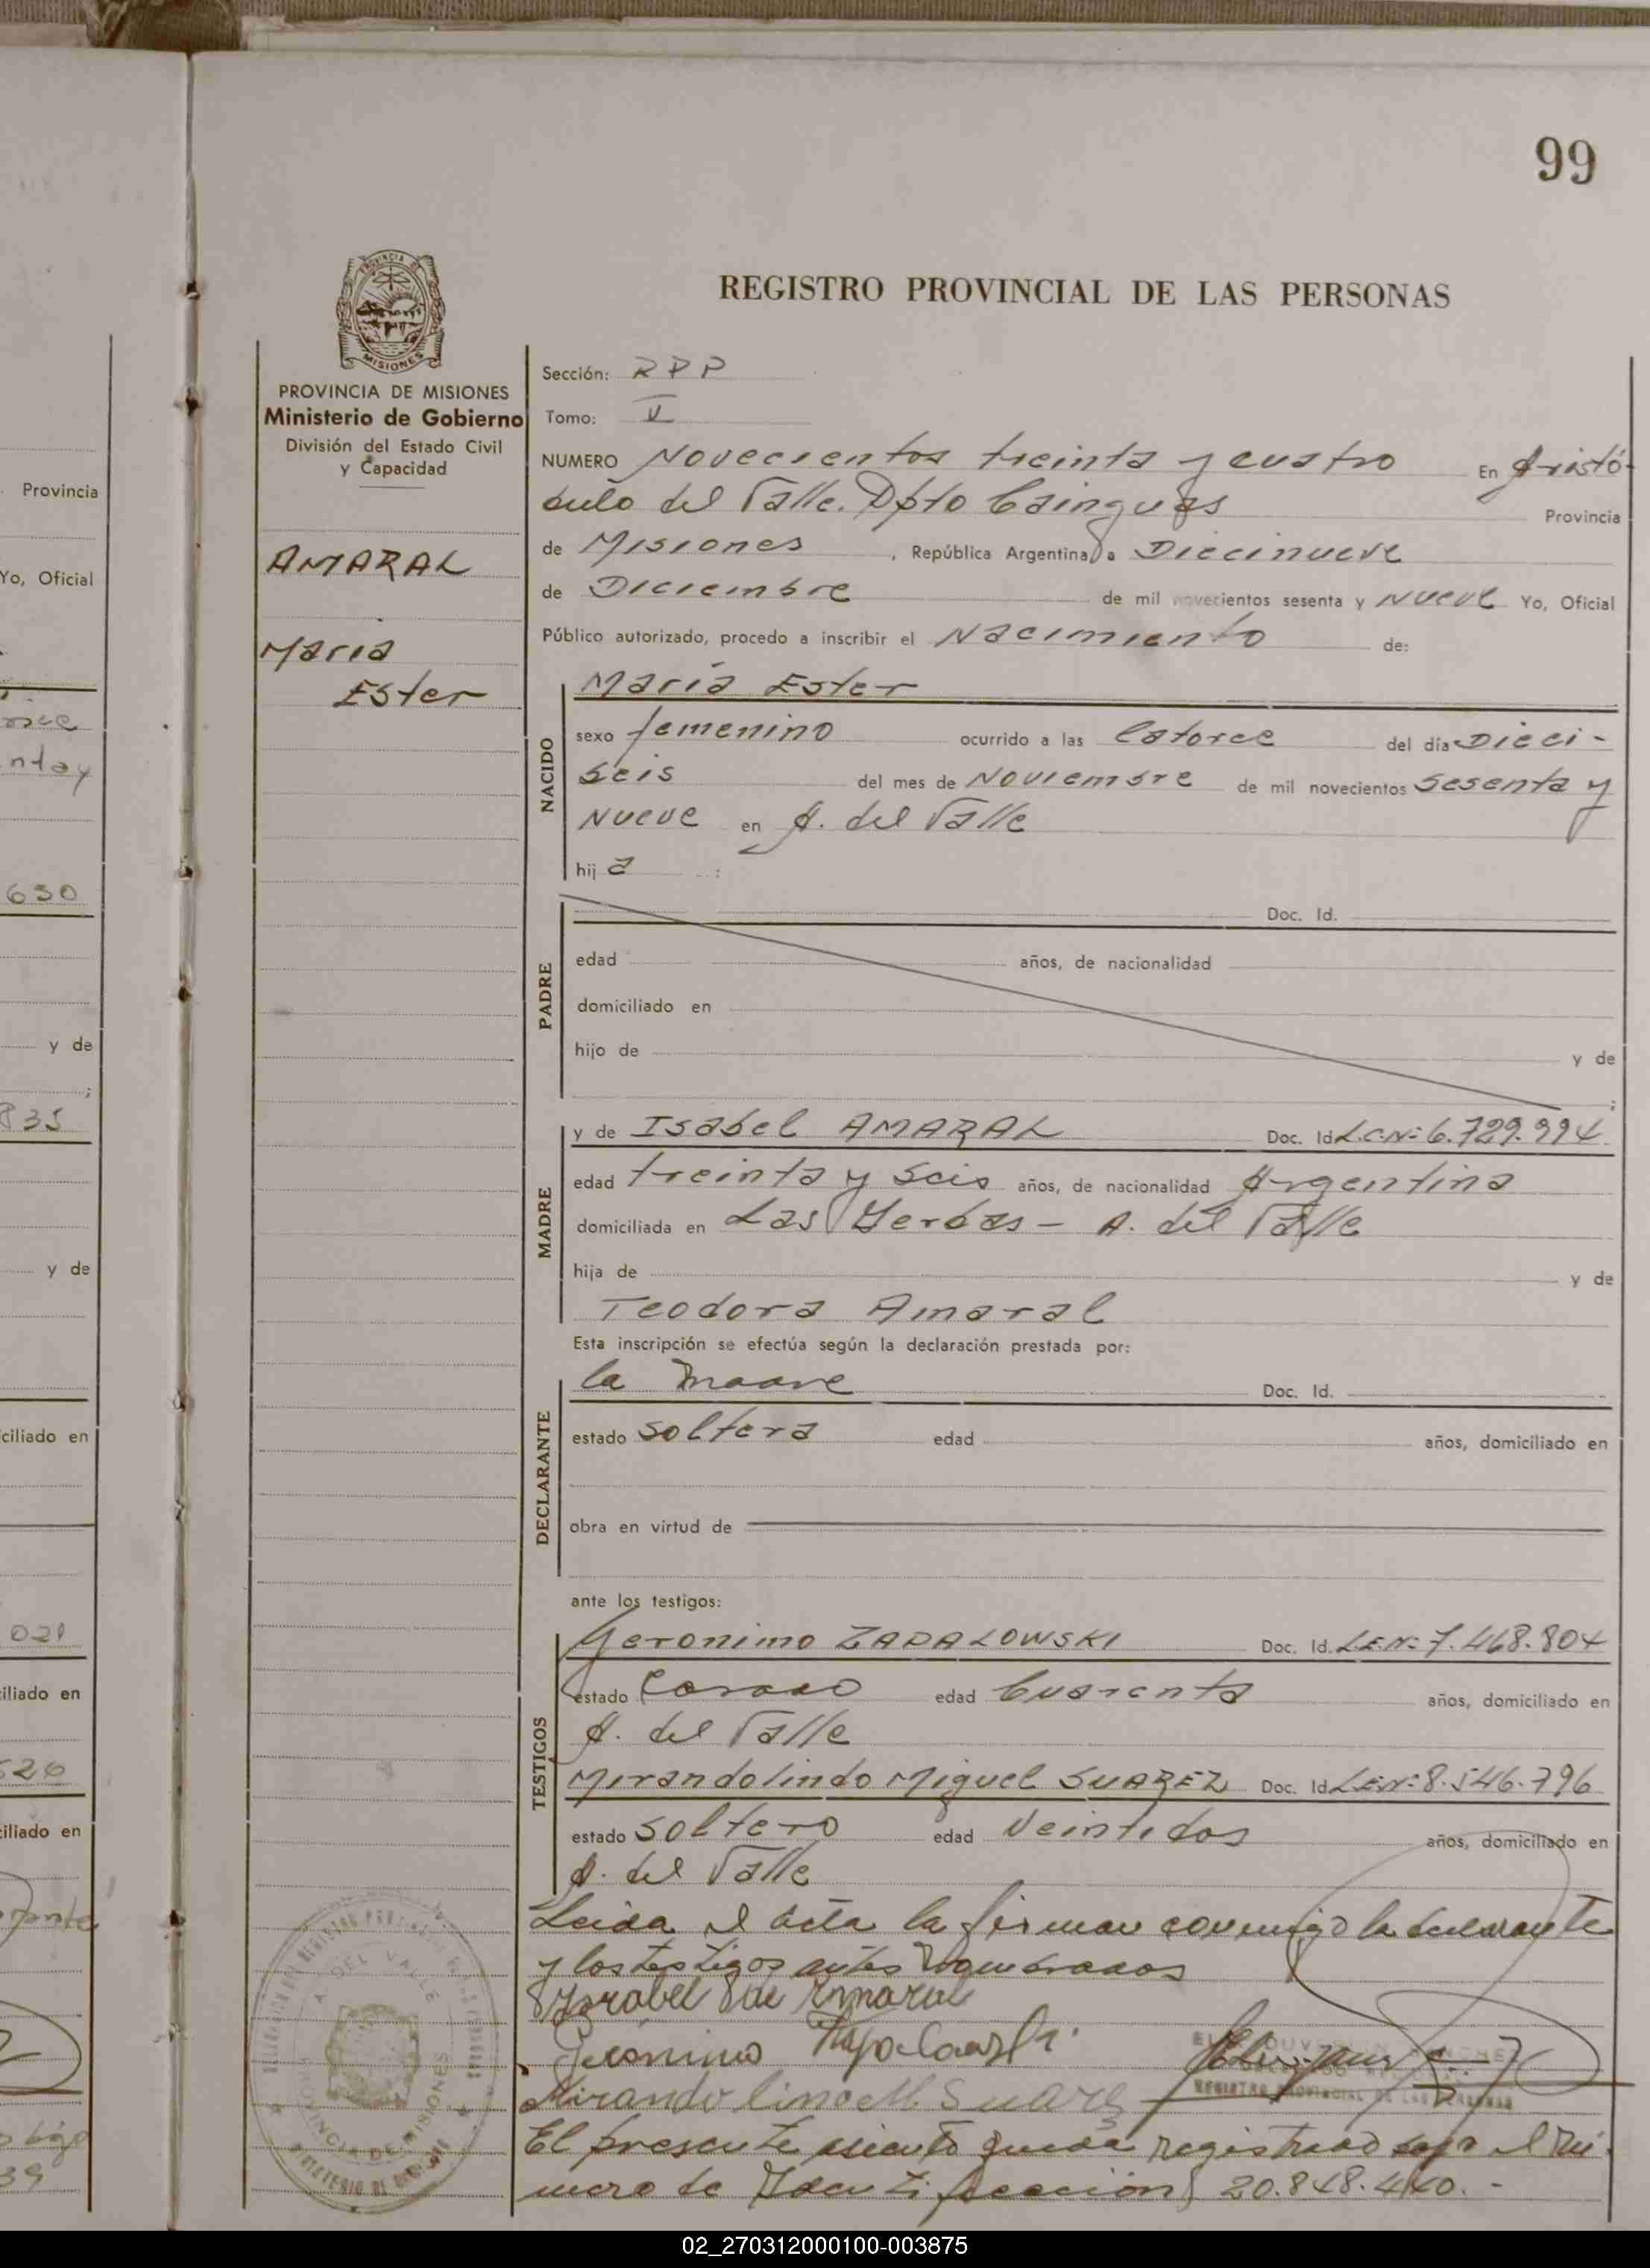 99
PROVINCIA DE MISIONES
Ministerio de Gobierno
División del Estado Civil
y Capacidad
AMARAL
María
Ester
REGISTRO PROVINCIAL DE LAS PERSONAS
Sección: RPP
Tomo: V
NUMERO Novecientos treinta y cuatro En Aristó-
bulo del Valle. Dpto Cainguas Provincia
de Misiones, República Argentina, a Diecinueve
de Diciembre de mil novecientos sesenta y NUEVE Yo, Oficial
Público autorizado, procedo a inscribir el Nacimiento de:
NACIDO
María Ester
sexo femenino ocurrido a las Catorce del día Dieci-
seis del mes de Noviembre de mil novecientos sesenta y
Nueve en A. del Valle
hija :
PADRE
Doc. Id.
edad años, de nacionalidad
domiciliado en
hijo de y de
;
MADRE
y de Isabel AMARAL Doc. Id. L.C.Nº 6.729.994
edad treinta y seis años, de nacionalidad Argentina
domiciliada en Las Yerbas - A. del Valle
hija de y de
Teodora Amaral
Esta inscripción se efectúa según la declaración prestada por:
DECLARANTE
la madre Doc. Id.
estado soltera edad años, domiciliado en
obra en virtud de
ante los testigos:
TESTIGOS
Geronimo ZAPALOWSKI Doc. Id. L.E.Nº 7.468.804
estado Casado edad Cuarenta años, domiciliado en
A. del Valle
Mirandolindo Miguel SUAREZ Doc. Id. L.E.Nº 8.546.796
estado soltero edad Veintidos años, domiciliado en
A. del Valle
Leida el acta la firman conmigo la declarante
y los testigos antes nombrados
Jerónimo
El presente asiento queda registrado bajo el nú-
mero de Identificación 20.848.440.-
A. DEL VALLE
PROVINCIA DE MISIONES
REGISTRO PROVINCIAL DE LAS PERSONAS
Provincia
Yo, Oficial
650
y de
;
835
y de
ciliado en
021
iliado en
526
iliado en
39
02_270312000100-003875